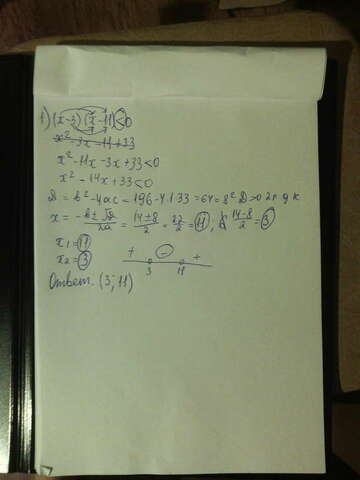 1) (x-3)(x-11)<0
x²-3x-11+33
x²-11x-3x+33<0
x²-14x+33<0
D = b²-4ac = 196-4·1·33=64=8² D>0 2 г д к
x = -b±√D/2a = 14±8/2 = 22/2 = 11; 14-8/2 = 3
x₁=11
x₂=3
+ - +
3 11
Ответ: (3; 11)